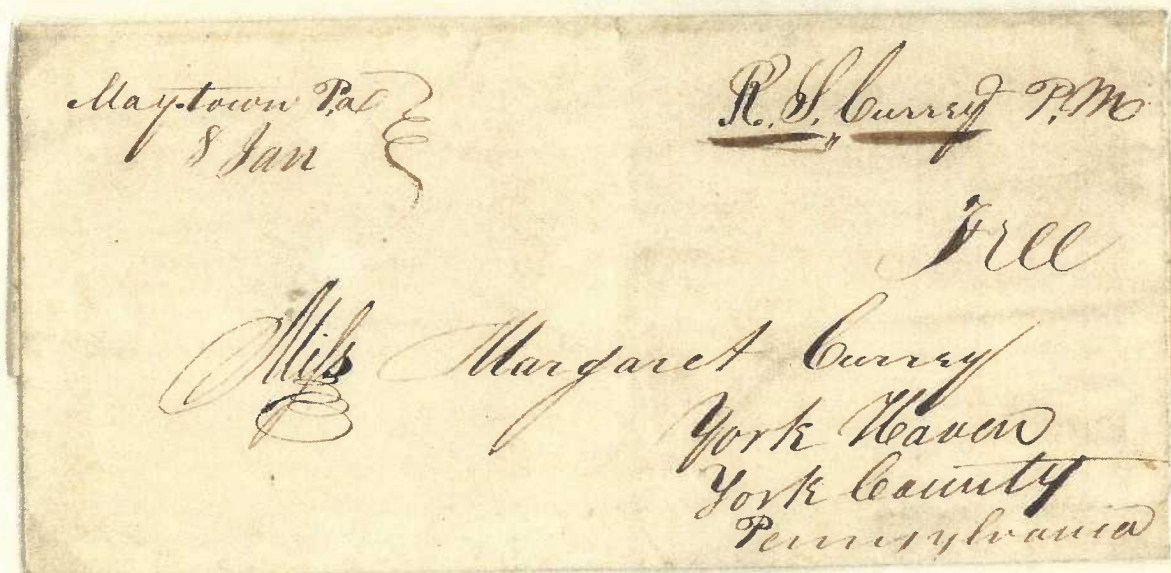 Maytown Pa
8 Jan
R. S. Currey P.M
Free
Miss Margaret Currey
York Haven
York County
Pennsylvania